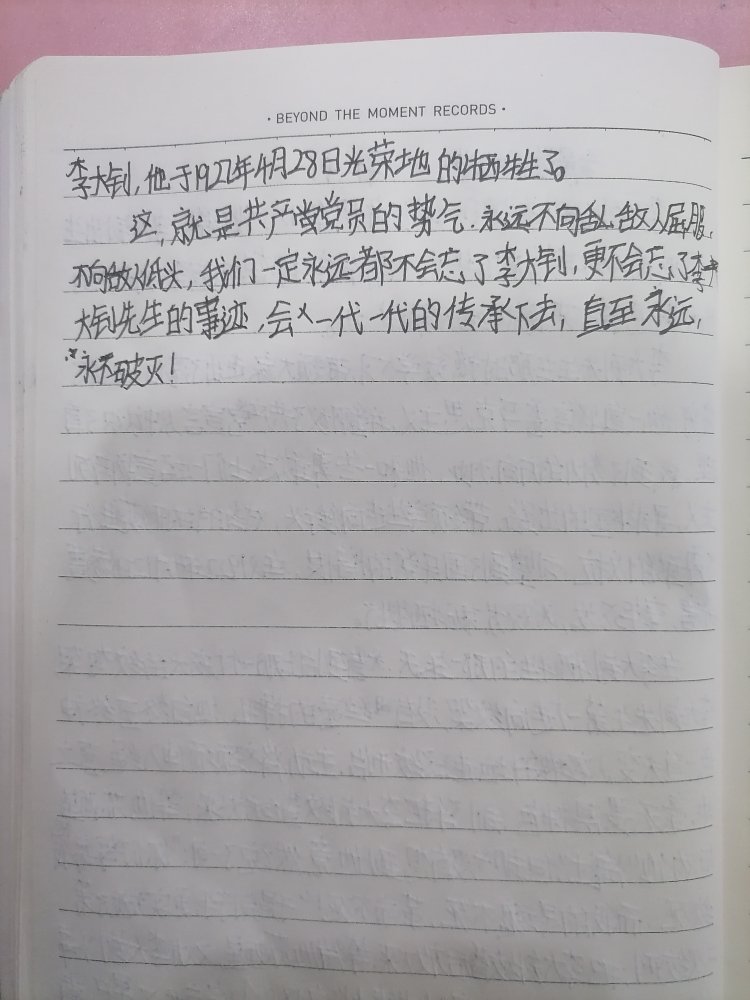 · BEYOND THE MOMENT RECORDS ·
李大钊，他于1927年4月28日光荣地的牺牲了。
这，就是共产党党员的势气。永远不向敌敌人屈服，
不向敌人低头，我们一定永远都不会忘了李大钊，更不会忘了李
大钊先生的事迹，会一代一代的传承下去，直至永远，
永不破灭！